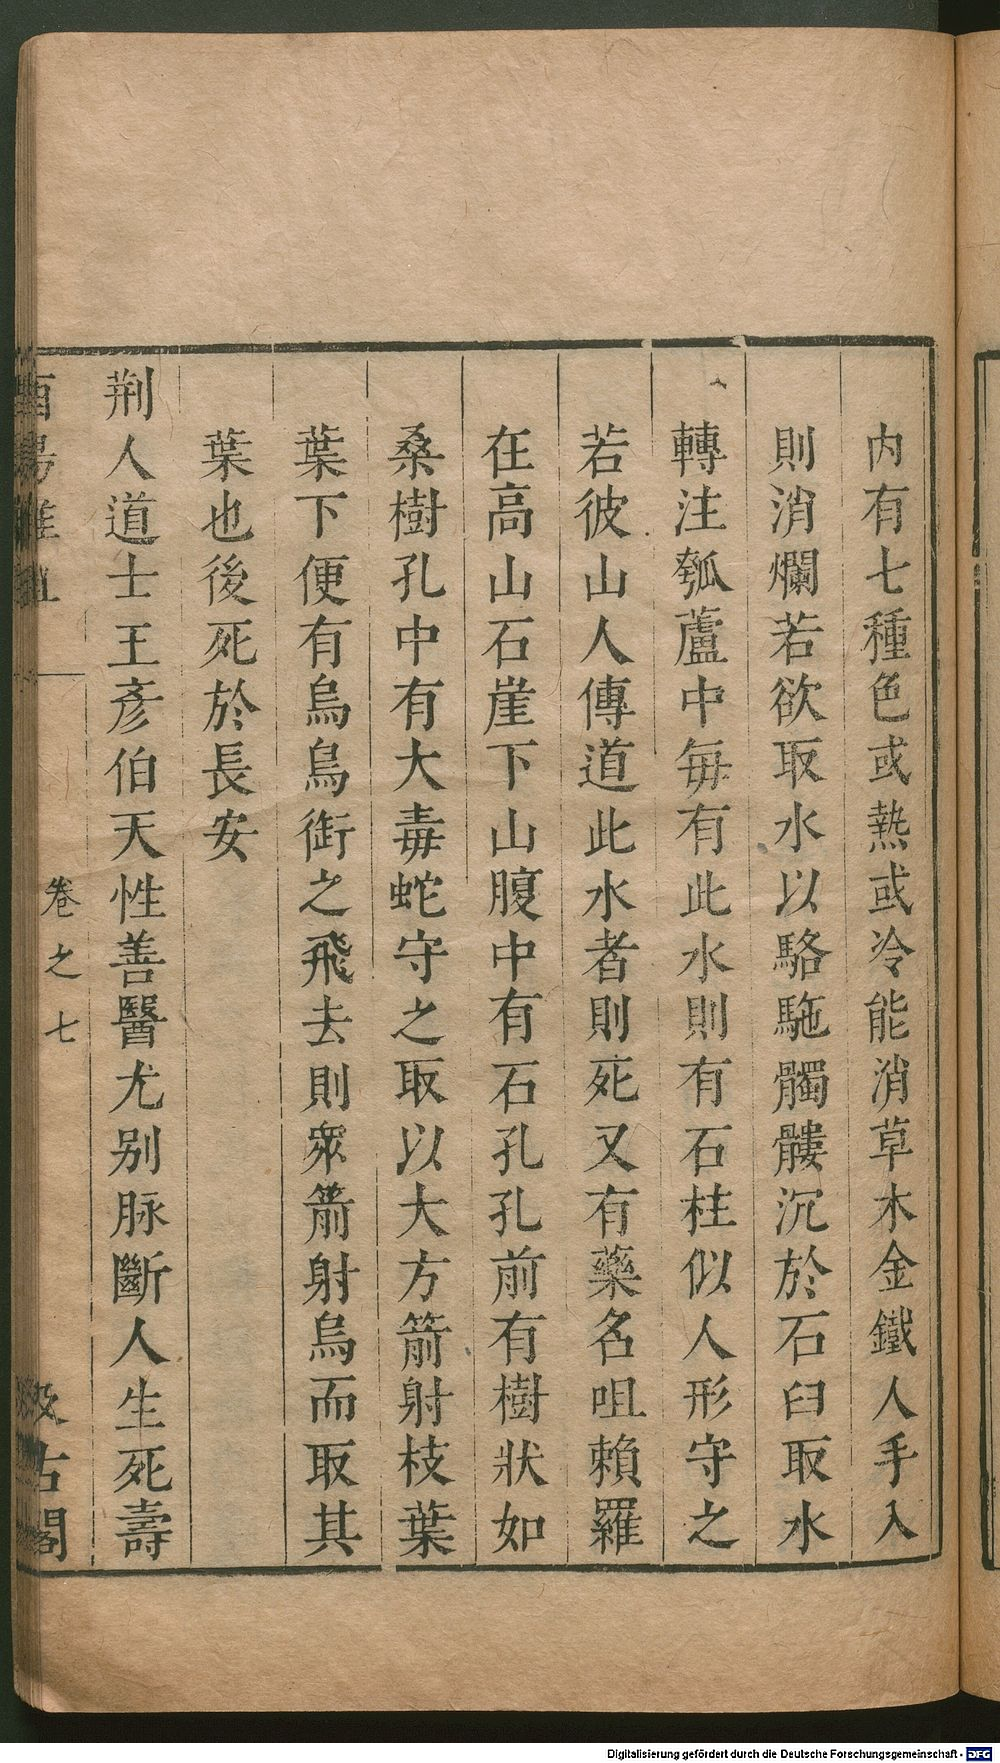 内有七種色或熱或冷能消草木金鐵人手入
則消爛若欲取水以駱駞髑髏沉於石臼取水
轉注瓠蘆中每有此水則有石柱似人形守之
若彼山人傳道此水者則死又有藥名咀賴羅
在高山石崖下山腹中有石孔孔前有樹狀如
桑樹孔中有大毒蛇守之取以大方箭射枝葉
葉下便有烏鳥銜之飛去則衆箭射烏而取其
葉也後死於長安
荆人道士王彥伯天性善醫尤别脉斷人生死壽
酉陽雜俎
卷之七
汲古閣
Digitalisierung gefördert durch die Deutsche Forschungsgemeinschaft - DFG